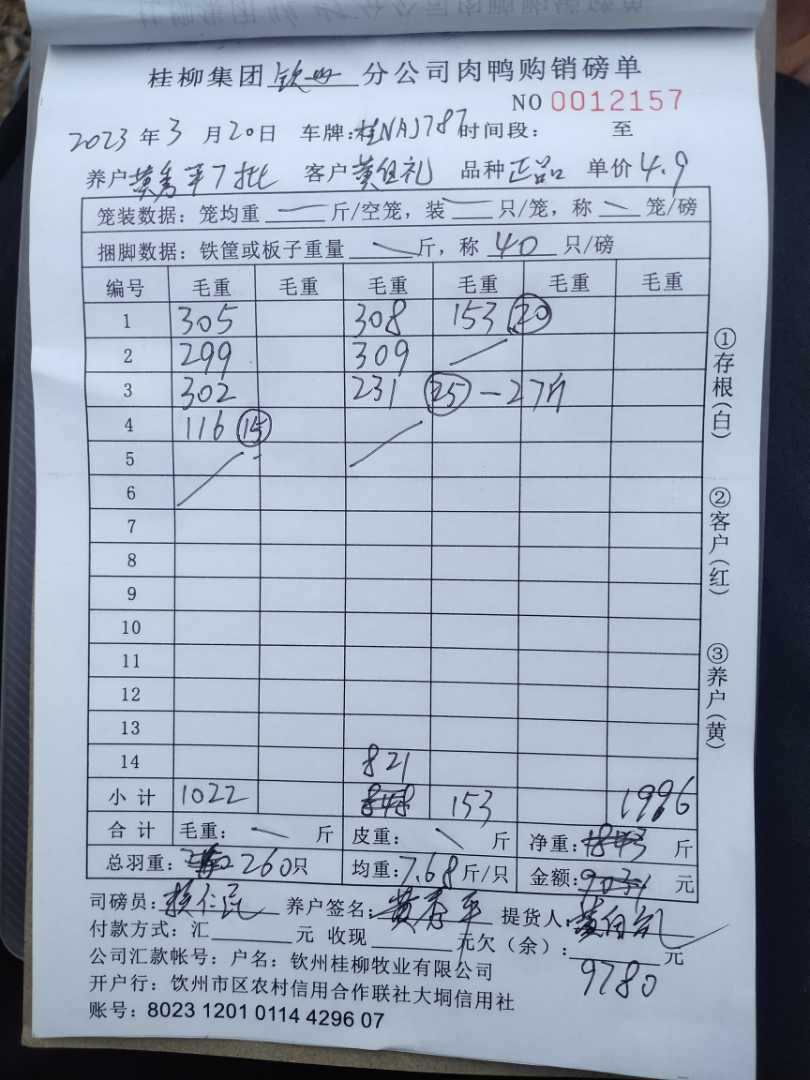 桂柳集团 钦州 分公司肉鸭购销磅单
NO 0012157
2023年3月20日 车牌:桂NAJ787 时间段: 至
养户 黄秀平7批 客户 黄伯礼 品种 正品 单价 4.9
笼装数据: 笼均重 斤/空笼, 装 只/笼, 称 笼/磅
捆脚数据: 铁筐或板子重量 斤, 称 40 只/磅
编号 毛重 毛重 毛重 毛重 毛重 毛重
1 305 308 153 20
2 299 309
3 302 231 25 -27斤
4 116 15
5
6
7
8
9
10
11
12
13
14 821
小计 1022 848 153 1996
合计 毛重: 斤 皮重: 斤 净重: 1843 斤
总羽重: 260只 均重: 7.68斤/只 金额: 9031 元
司磅员: 养户签名: 黄秀平 提货人: 黄伯礼
付款方式: 汇 元 收现 元欠(余): 元
9780
公司汇款帐号: 户名: 钦州桂柳牧业有限公司
开户行: 钦州市区农村信用合作联社大垌信用社
账号: 8023 1201 0114 4296 07
①存根(白)
②客户(红)
③养户(黄)